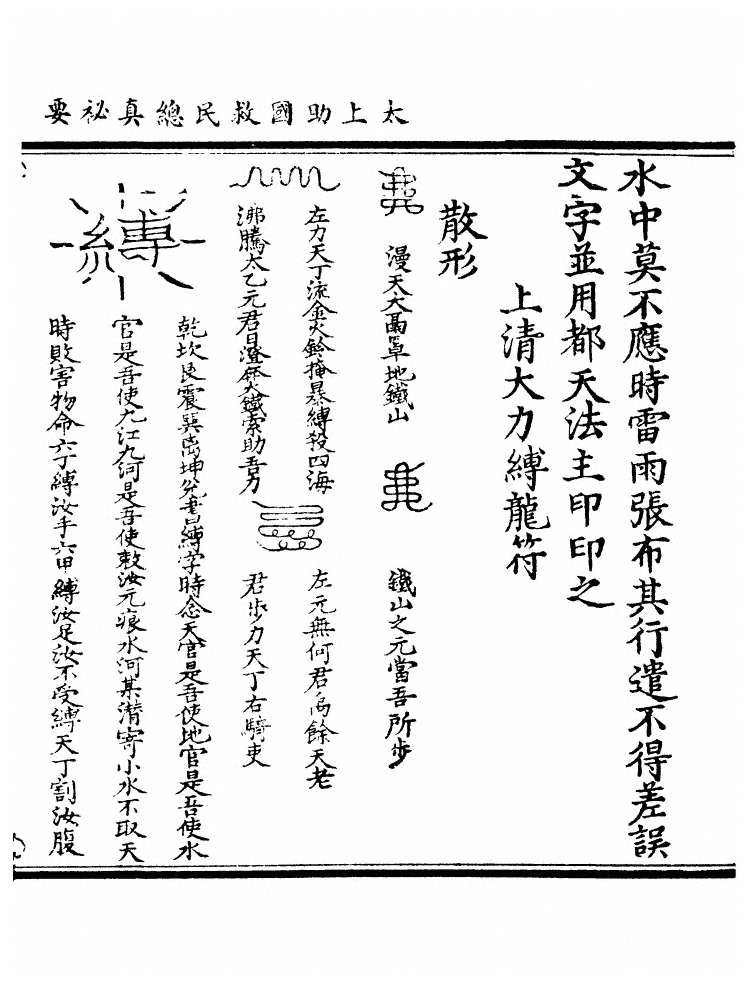 太上助國救民總真祕要
水中莫不應時雷雨張布其行遣不得差誤
文字並用都天法主印印之
上清大力縛龍符
散形
漫天大罩地鐵山
鐵山之元當吾所步
左力天丁流金火鈴掩暴縛殺四海
沸騰太乙元君日澄火鐵索助吾力
左元無何君烏餘天老
君步力天丁右騎吏
縛
乾坎艮震巽离坤兌書縛字時念天官是吾使地官是吾使水
官是吾使九江九河是吾使敕汝元水河某潛寄小水不取天
時敗害物命六丁縛汝手六甲縛汝足汝不受縛天丁割汝腹